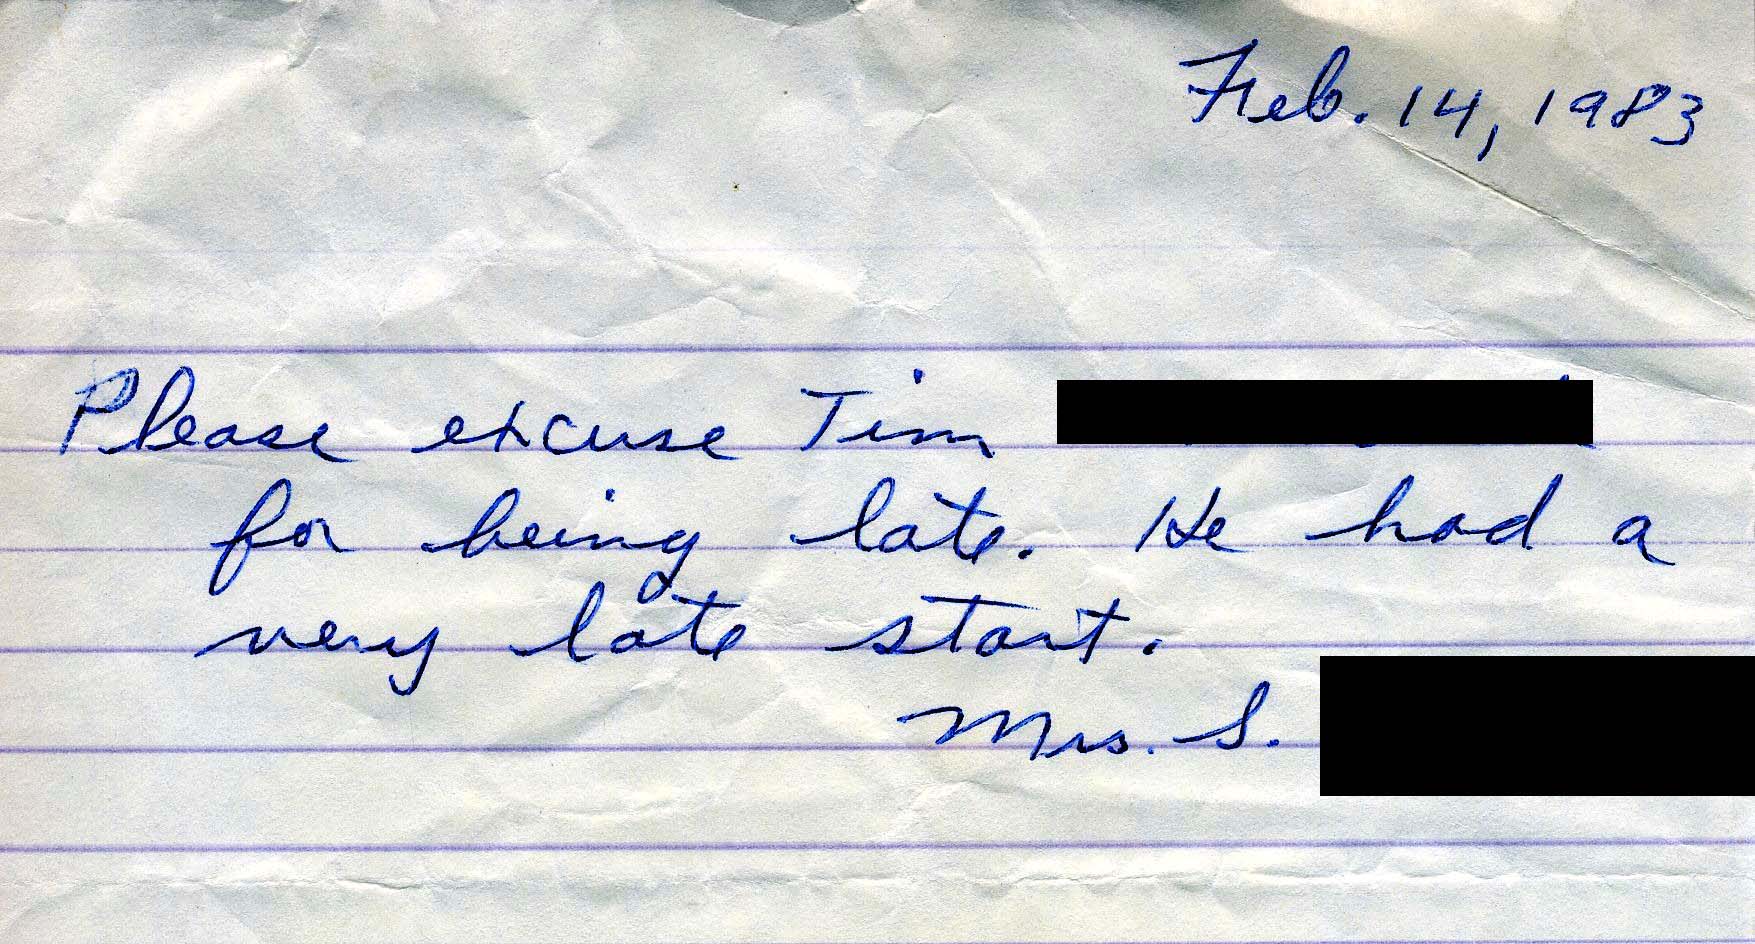 Feb. 14, 1983
Please excuse Tim
for being late. He had a
very late start.
Mrs. S.